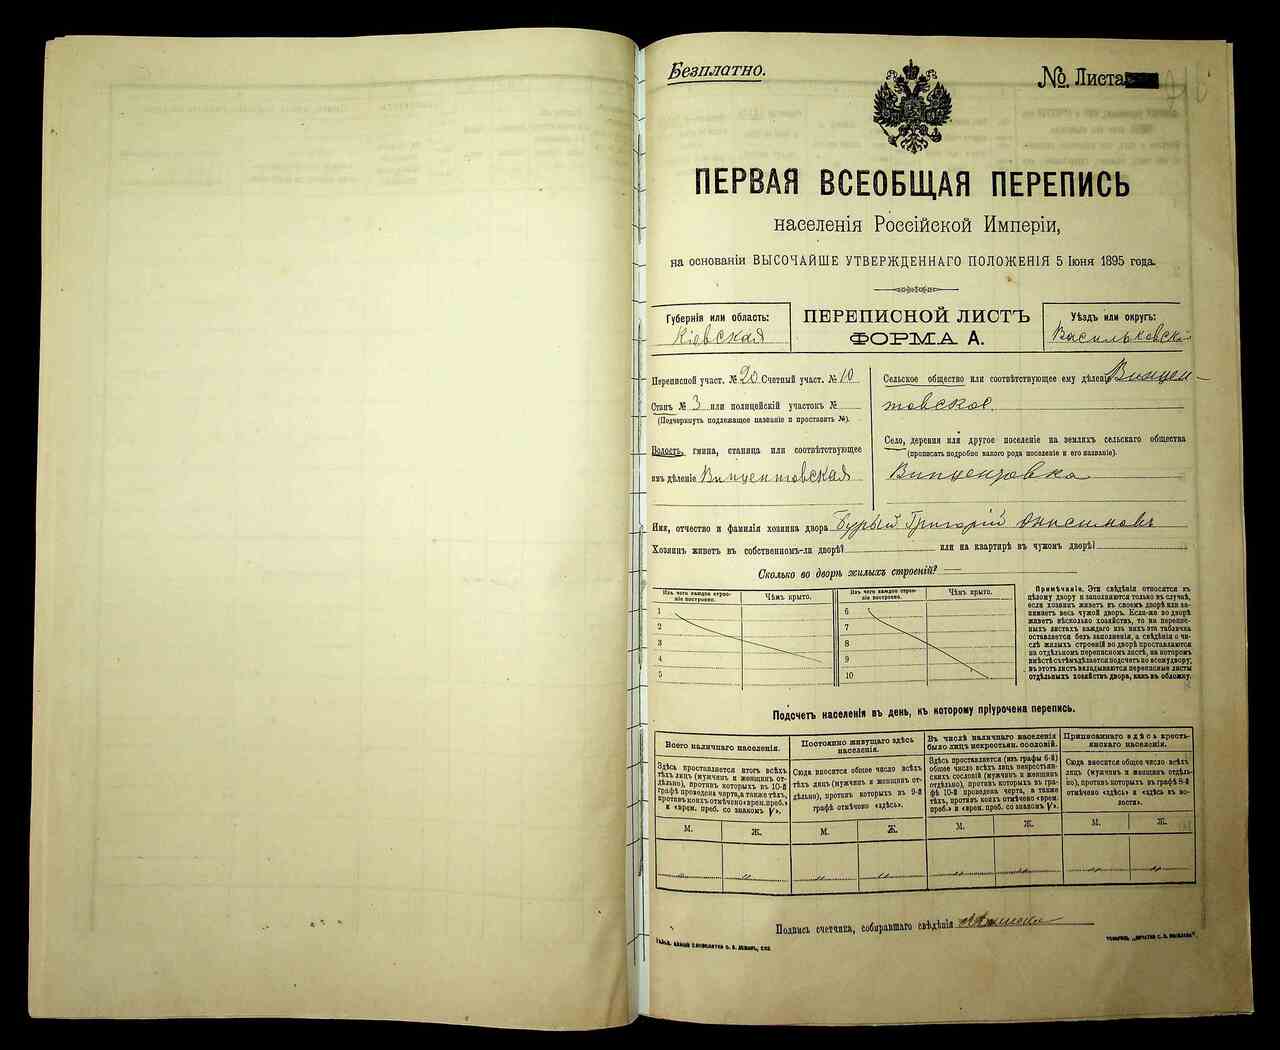 Безплатно.
№ Листа
ПЕРВАЯ ВСЕОБЩАЯ ПЕРЕПИСЬ
населенія Россійской Имперіи,
на основаніи ВЫСОЧАЙШЕ УТВЕРЖДЕННАГО ПОЛОЖЕНІЯ 5 Іюня 1895 года.
Губернія или область:
Кіевская
ПЕРЕПИСНОЙ ЛИСТЪ
ФОРМА А.
Уѣздъ или округъ:
Васильковскій
Переписной участ. № 20 Счетный участ. № 10
Станъ № 3 или полицейскій участокъ №
(Подчеркнуть подлежащее названіе и проставить №).
Волость, гмина, станица или соотвѣтствующее
имъ дѣленіе Винцентовская
Сельское общество или соотвѣтствующее ему дѣленіе Винцен-
товское.
Село, деревня или другое поселеніе на земляхъ сельскаго общества
(прописать подробно какого рода поселеніе и его названіе).
Винцентовка
Имя, отчество и фамилія хозяина двора Бурый Григорій Онисимовъ
Хозяинъ живетъ въ собственномъ-ли дворѣ? или на квартирѣ въ чужомъ дворѣ?
Сколько во дворѣ жилыхъ строеній? —
Изъ чего каждое строе-
ніе построено.
Чѣмъ крыто.
1
2
3
4
5
Изъ чего каждое строе-
ніе построено.
Чѣмъ крыто.
6
7
8
9
10
Примѣчаніе. Эти свѣдѣнія относятся къ
цѣлому двору и заполняются только въ случаѣ,
если хозяинъ живетъ въ своемъ дворѣ или за-
нимаетъ весь чужой дворъ. Если-же во дворѣ
живетъ нѣсколько хозяйствъ, то на перепис-
ныхъ листахъ каждаго изъ нихъ эта табличка
оставляется безъ заполненія, а свѣдѣнія о чи-
слѣ жилыхъ строеній во дворѣ проставляются
на отдѣльномъ переписномъ листѣ, на которомъ
вмѣстѣ съ тѣмъ дѣлается подсчетъ по всему двору;
въ этотъ листъ вкладываются переписные листы
отдѣльныхъ хозяйствъ двора, какъ въ обложку.
Подсчетъ населенія въ день, къ которому пріурочена перепись.
Всего наличнаго населенія.
Здѣсь проставляется итогъ всѣхъ
тѣхъ лицъ (мужчинъ и женщинъ от-
дѣльно), противъ которыхъ въ 10-й
графѣ проведена черта, а также тѣхъ,
противъ коихъ отмѣчено «врем. преб.»
и «врем. преб. со знакомъ V».
Постоянно живущаго здѣсь
населенія.
Сюда вносится общее число всѣхъ
тѣхъ лицъ (мужчинъ и женщинъ от-
дѣльно), противъ которыхъ въ 9-й
графѣ отмѣчено «здѣсь».
Въ числѣ наличнаго населенія
было лицъ некрестьян. сословій.
Здѣсь проставляется (изъ графы 6-й)
общее число всѣхъ лицъ некрестьян-
скихъ сословій (мужчинъ и женщинъ
отдѣльно), противъ которыхъ въ гра-
фѣ 10-й проведена черта, а также
тѣхъ, противъ коихъ отмѣчено «врем.
преб.» и «врем. преб. со знакомъ V».
Приписаннаго здѣсь кресть-
янскаго населенія.
Сюда вносится общее число всѣхъ
лицъ (мужчинъ и женщинъ отдѣль-
но), противъ которыхъ въ графѣ 8-й
отмѣчено «здѣсь» и «здѣсь въ во-
лости».
М. Ж. М. Ж. М. Ж. М. Ж.
" " " " " " " "
Подпись счетчика, собиравшаго свѣдѣнія